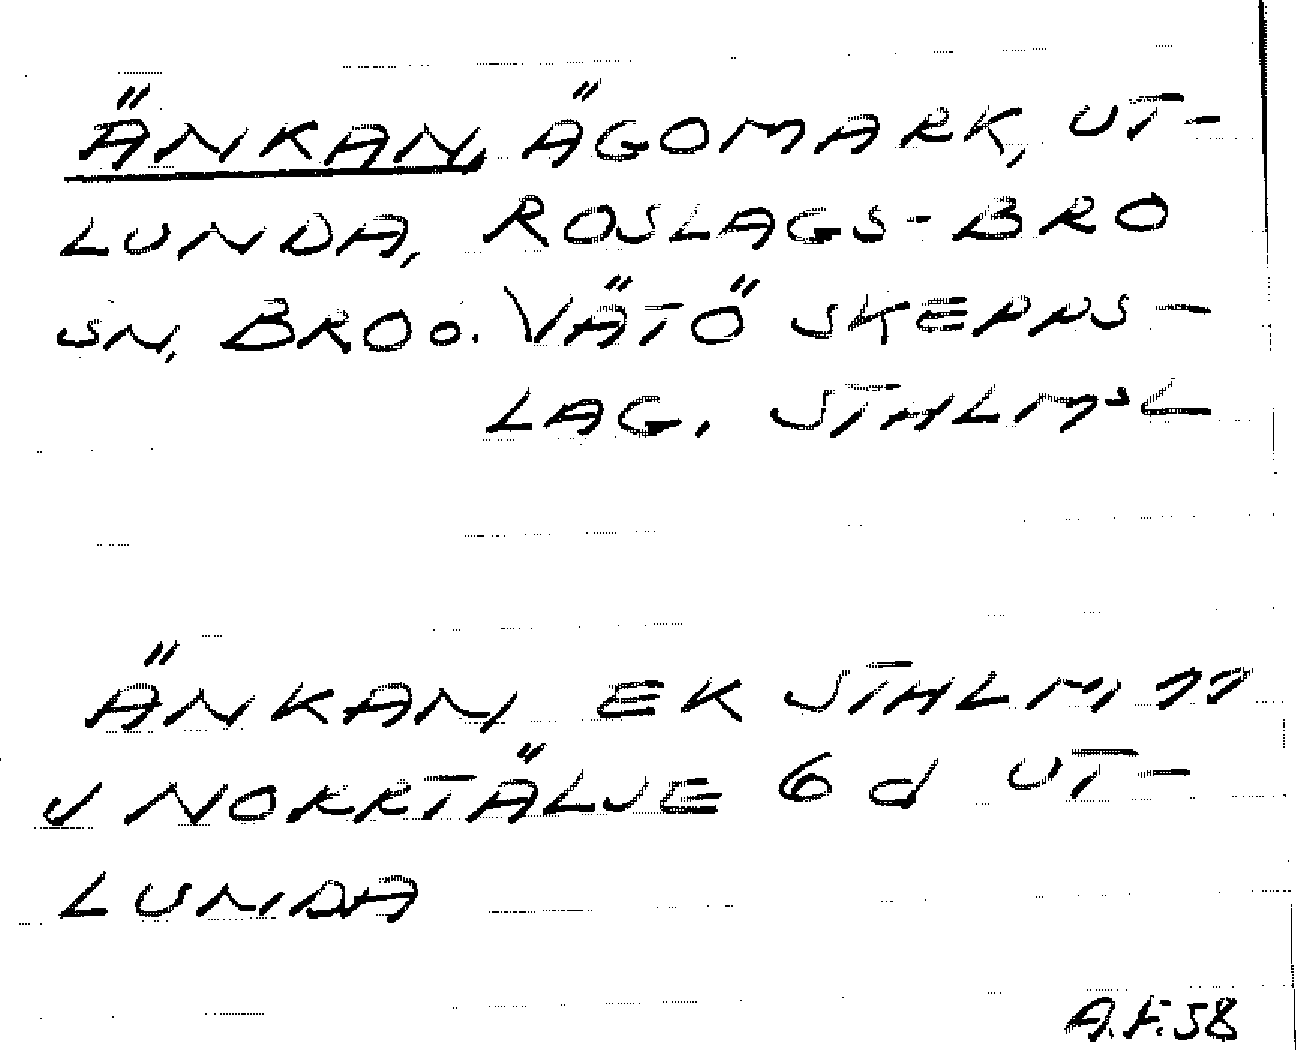 ÄNKAN, ÄGOMARK, UT-
LUNDA, ROSLAGS-BRO
SN, BRO o. VÄTÖ SKEPPS-
LAG, STHLMS L
ÄNKAN, EK STHLM 77
V NORRTÄLJE 6 d UT-
LUNDA
A.F. 58